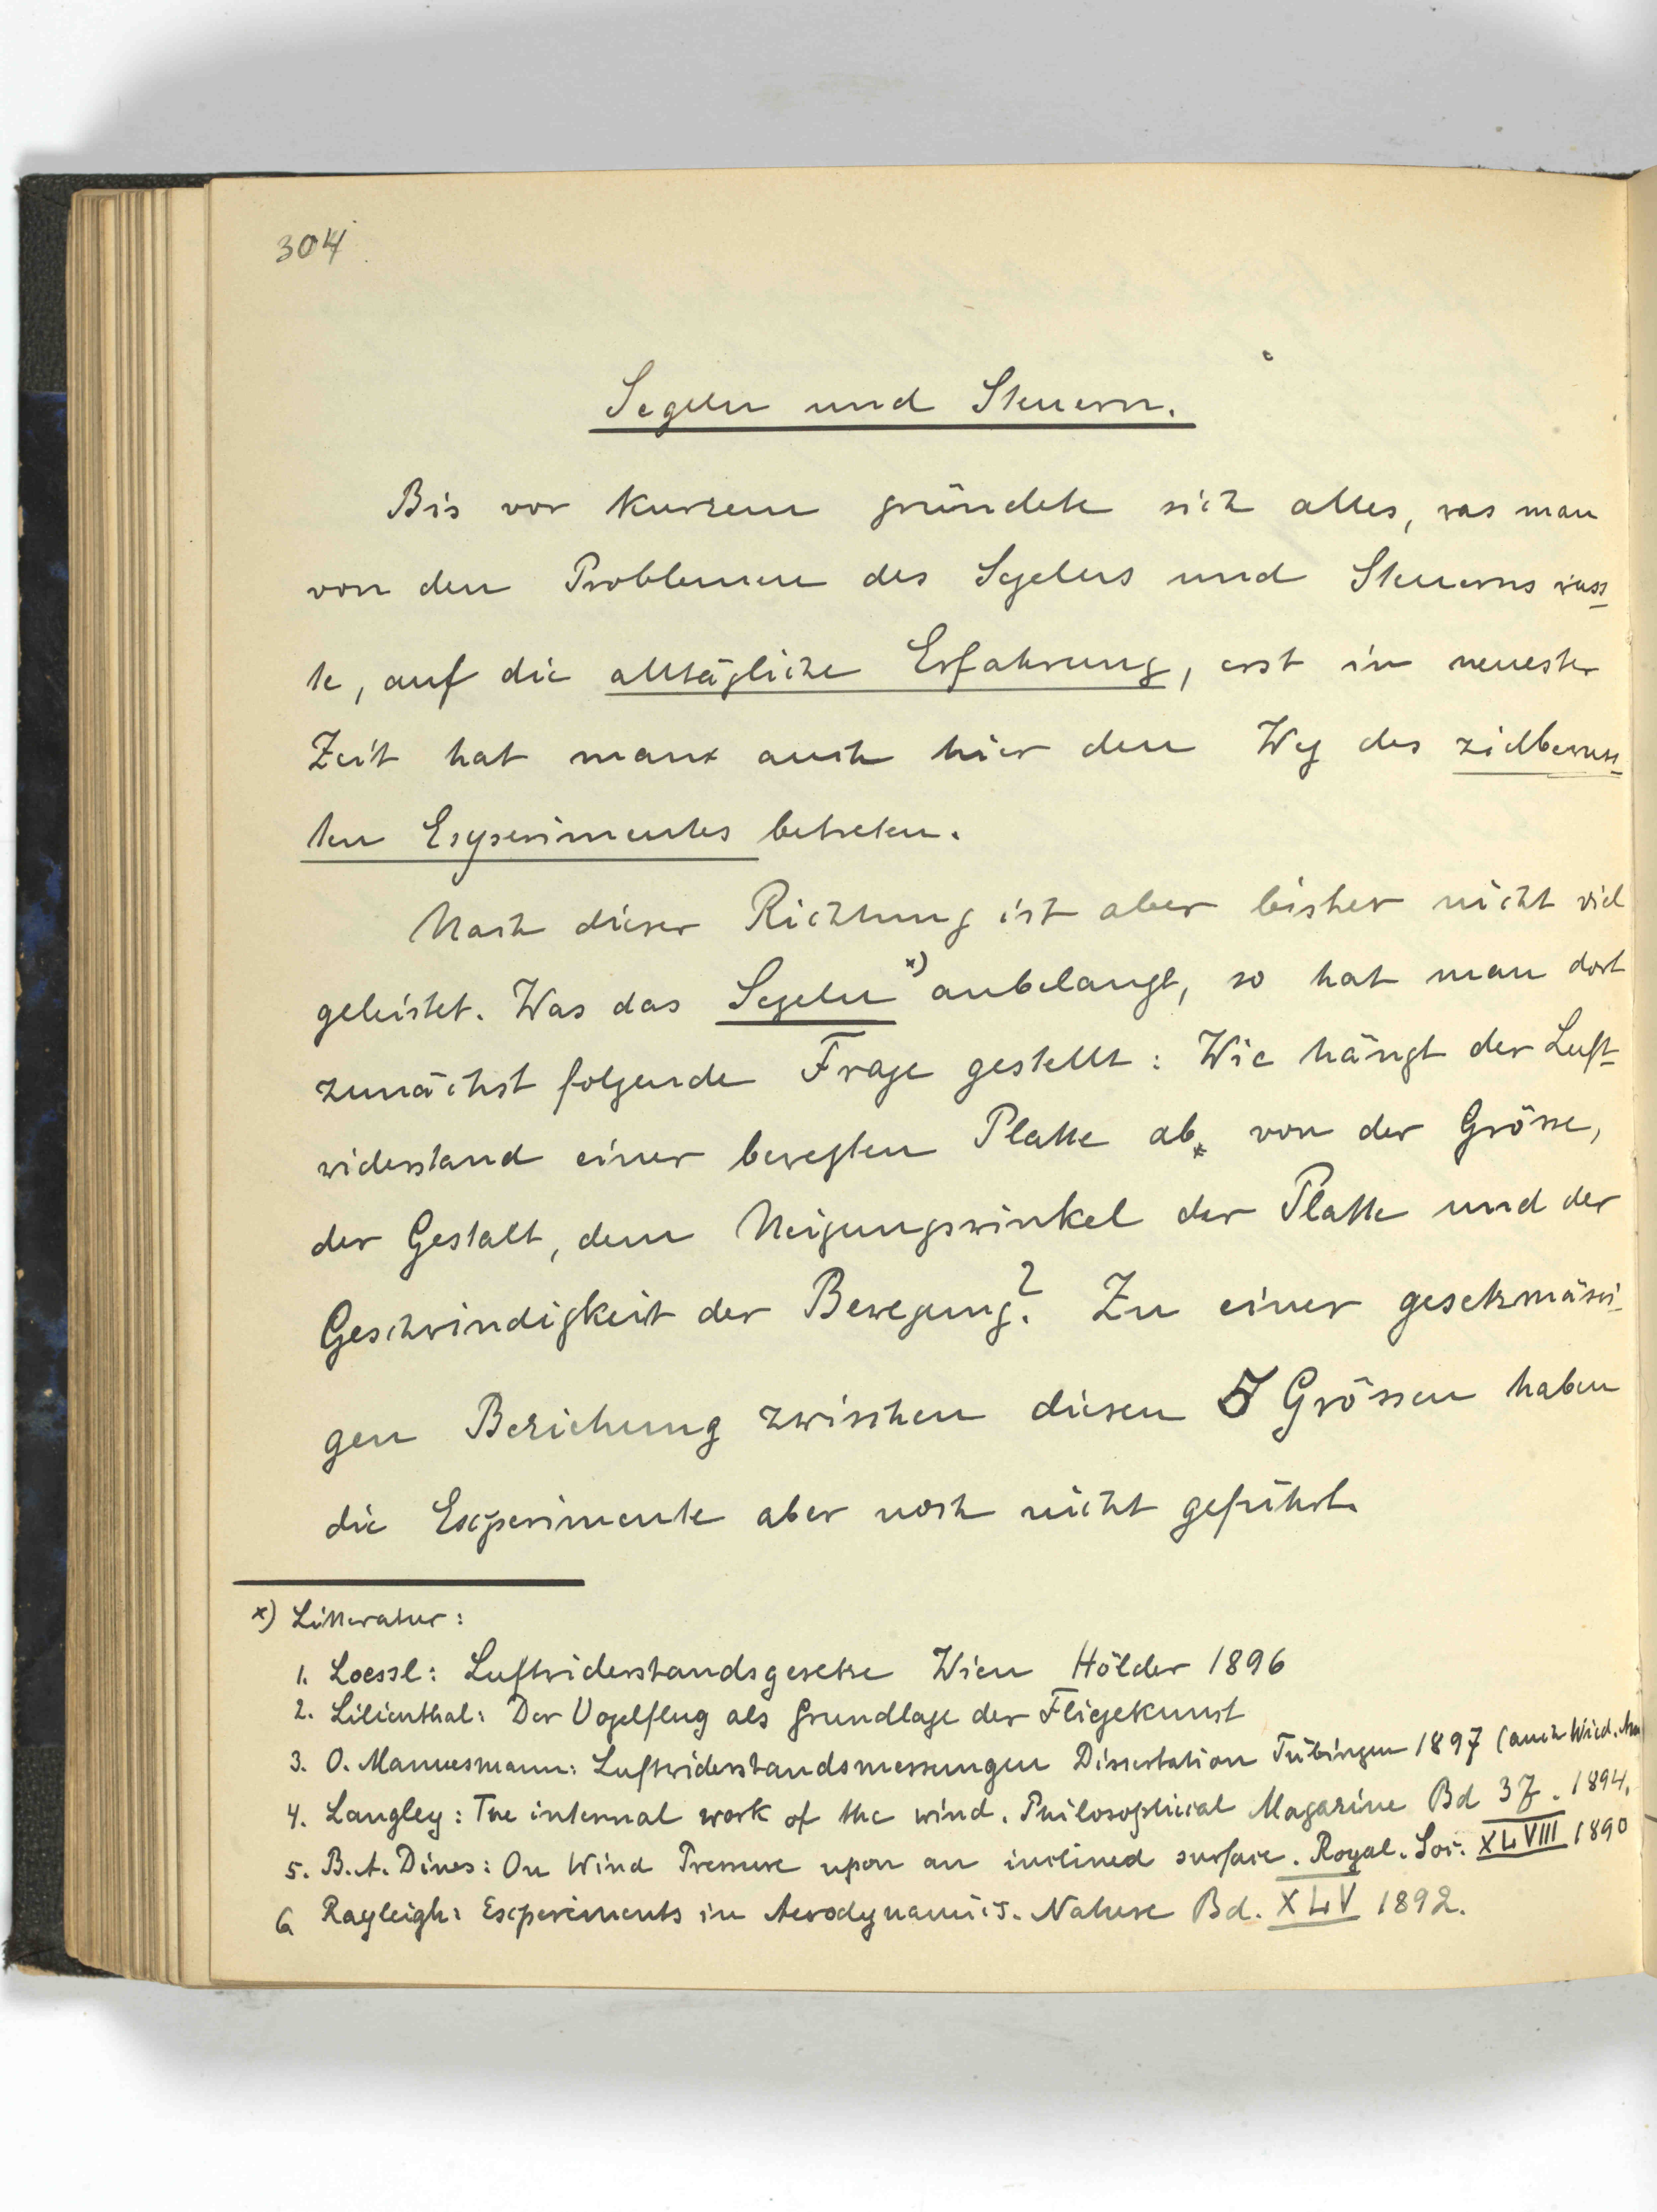 304
Segeln und Steuern.
Bis vor kurzem gründete sich alles, was man
von den Problemen des Segelns und Steuerns wuss-
te, auf die alltägliche Erfahrung, erst in neuester
Zeit hat man auch hier den Weg des zielbewuss-
ten Experimentes betreten.
Nach dieser Richtung ist aber bisher nicht viel
geleistet. Was das Segeln x) anbelangt, so hat man dort
zunächst folgende Frage gestellt: Wie hängt der Luft-
widerstand einer bewegten Platte ab von der Grösse,
der Gestalt, dem Neigungswinkel der Platte und der
Geschwindigkeit der Bewegung? Zu einer gesetzmässi-
gen Beziehung zwischen diesen 5 Grössen haben
die Experimente aber noch nicht geführt.
x) Litteratur:
1. Loessl: Luftwiderstandsgesetze Wien Hölder 1896
2. Lilienthal: Der Vogelflug als Grundlage der Fliegekunst
3. O. Mannesmann: Luftwiderstandsmessungen Dissertation Tübingen 1897 (auch Wied.
4. Langley: The internal work of the wind. Philosophical Magazine Bd 37. 1894.
5. B.A. Dines: On Wind Pressure upon an inclined surface. Royal. Soc. XLVIII 1890
6 Rayleigh: Experiments in Aerodynamics. Nature Bd. XLV 1892.